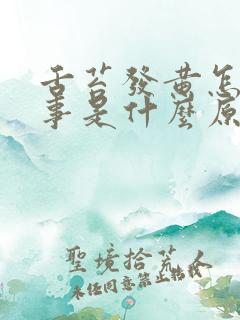 舌苔發黄怎
事是什麼原
聖境拾荒人
未经同意禁止转载